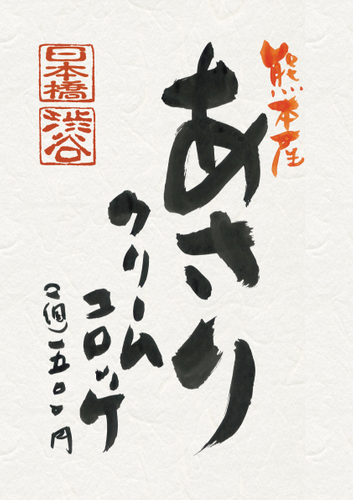 熊本産
あさり
クリーム
コロッケ
個 一五〇〇円
日本橋
渋谷